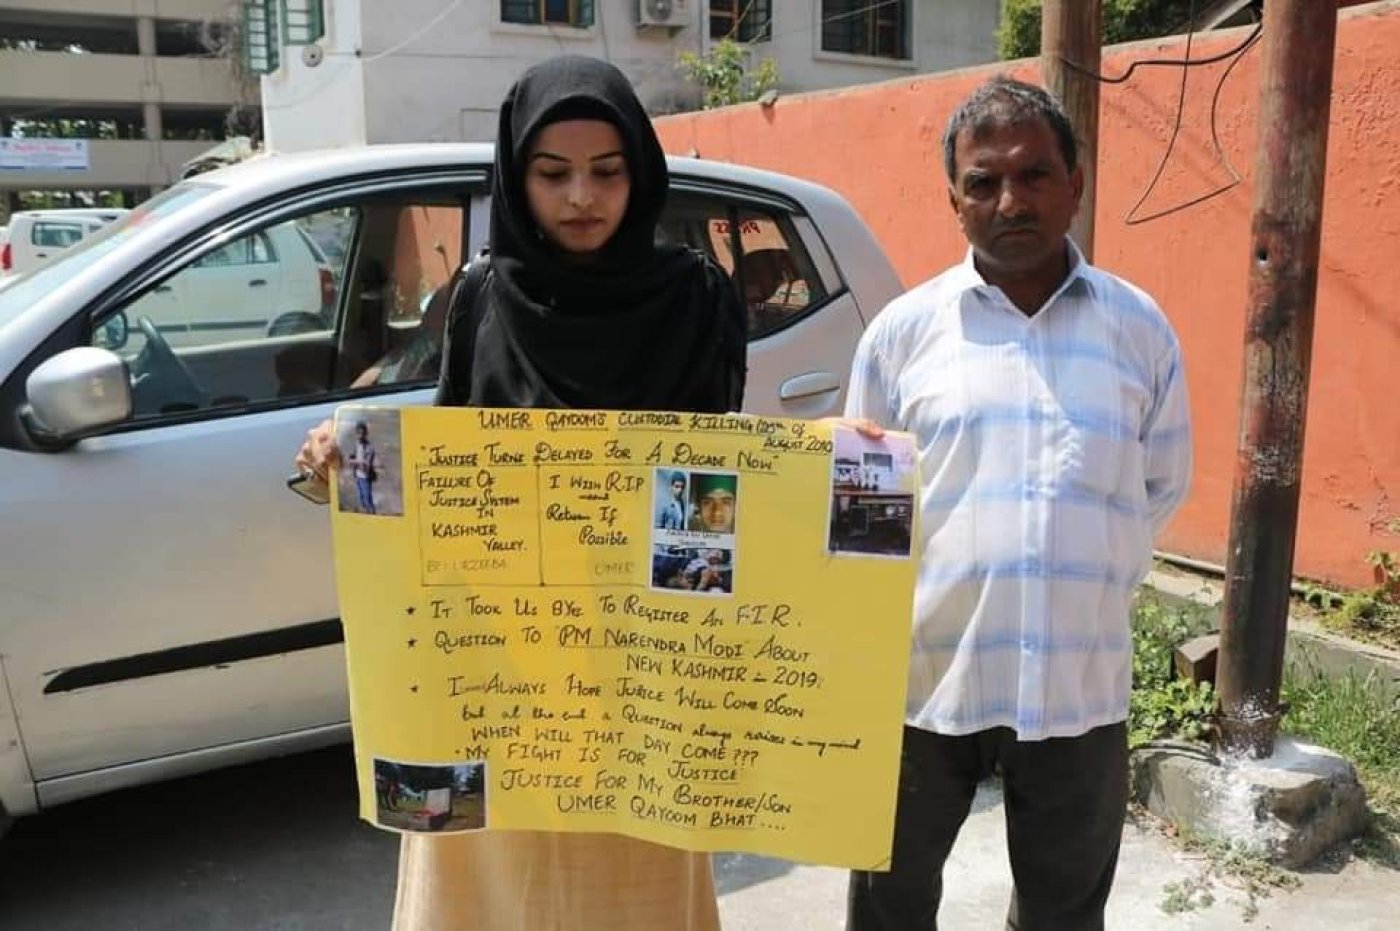 UMER QAYOOM'S CUSTODIAL KILLING
AUGUST 2010
"JUSTICE TURNS DELAYED FOR A DECADE NOW"
FAILURE OF
JUSTICE SYSTEM
IN
KASHMIR
VALLEY.
I WISH R.I.P
meant
Return If
Possible
UMER
* IT TOOK US 8YRS TO REGISTER AN F.I.R.
* QUESTION TO PM NARENDRA MODI ABOUT
NEW KASHMIR - 2019.
* I ALWAYS HOPE JUSTICE WILL COME SOON
but at the end a QUESTION always raises in my mind
WHEN WILL THAT DAY COME???
• MY FIGHT IS FOR JUSTICE
JUSTICE FOR MY BROTHER/SON
UMER QAYOOM BHAT....
PRESS